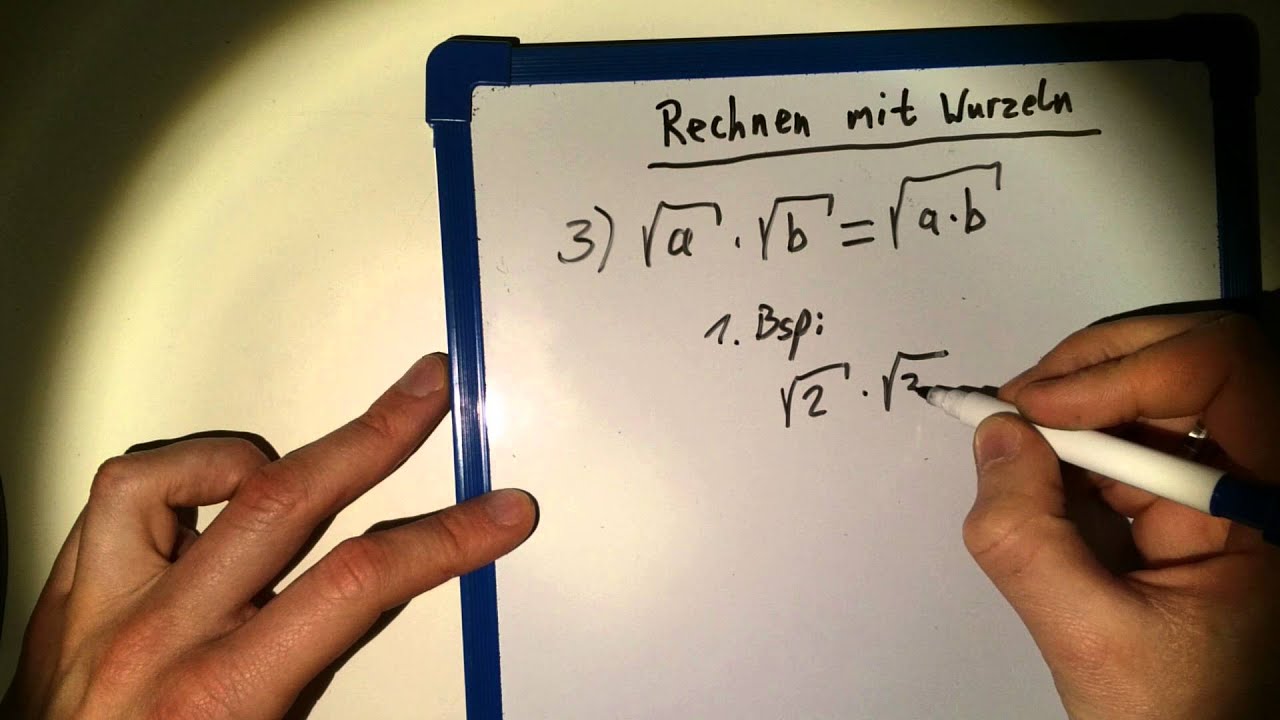 Rechnen mit Wurzeln
3) √a · √b = √a·b
1. Bsp:
√2 · √2